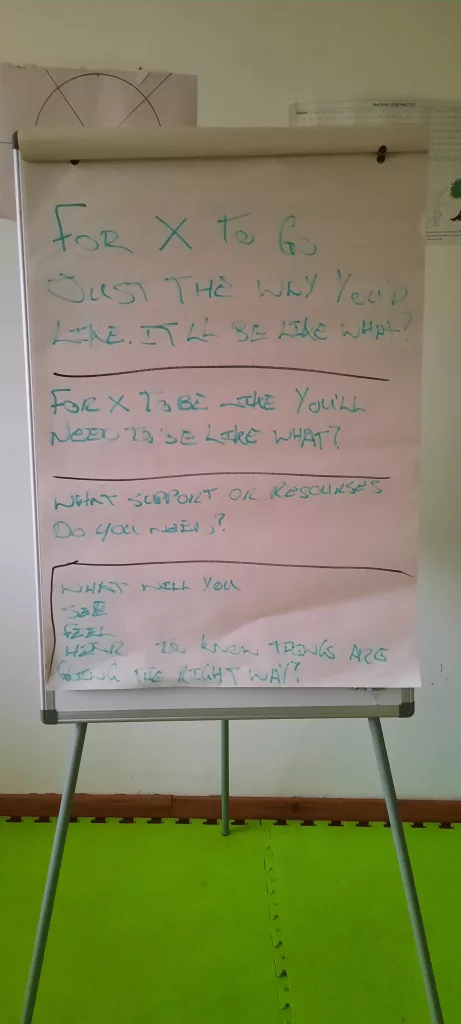 FOR X TO GO
JUST THE WAY YOU'D
LIKE. IT'LL BE LIKE WHAT?
FOR X TO BE LIKE YOU'LL
NEED TO BE LIKE WHAT?
WHAT SUPPORT OR RESOURSES
DO YOU NEED,?
WHAT WILL YOU
SEE
FEEL
HEAR TO KNOW THINGS ARE
GOING THE RIGHT WAY?